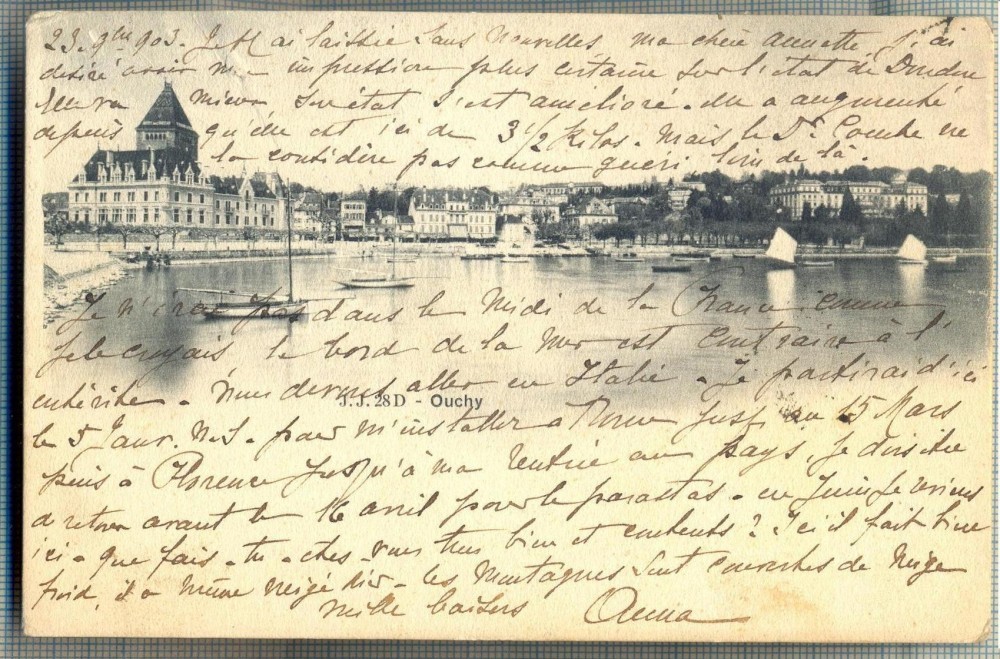 23. 9bre 903. Je t'ai laissée sans nouvelles, ma chère Annette, j'ai
désiré avoir une impression plus certaine sur l'état de Doudou
Elle va mieux son état s'est amélioré. elle a augmenté
depuis qu'elle est ici de 3 1/2 Kilos. Mais le Dr. Combe ne
la considère pas comme guéri, loin de là.
Je n'irai pas dans le Midi de la France comme
je le croyais, le bord de la mer est contraire à l'
entérite. Nous devons aller en Italie. Je partirai d'ici
J.J. 28 D - Ouchy
le 5 Janv. N.S. pour m'installer à Rome jusqu'au 15 Mars
puis à Florence jusqu'à ma rentrée au pays, je dois être
de retour avant le 16 avril pour le parastas. en Juin je reviens
ici. que fais-tu. êtes-vous tous bien et contents? Ici il fait bien
froid, il a même neigé hier. les Montagnes sont couvertes de Neige
mille baisers Anna